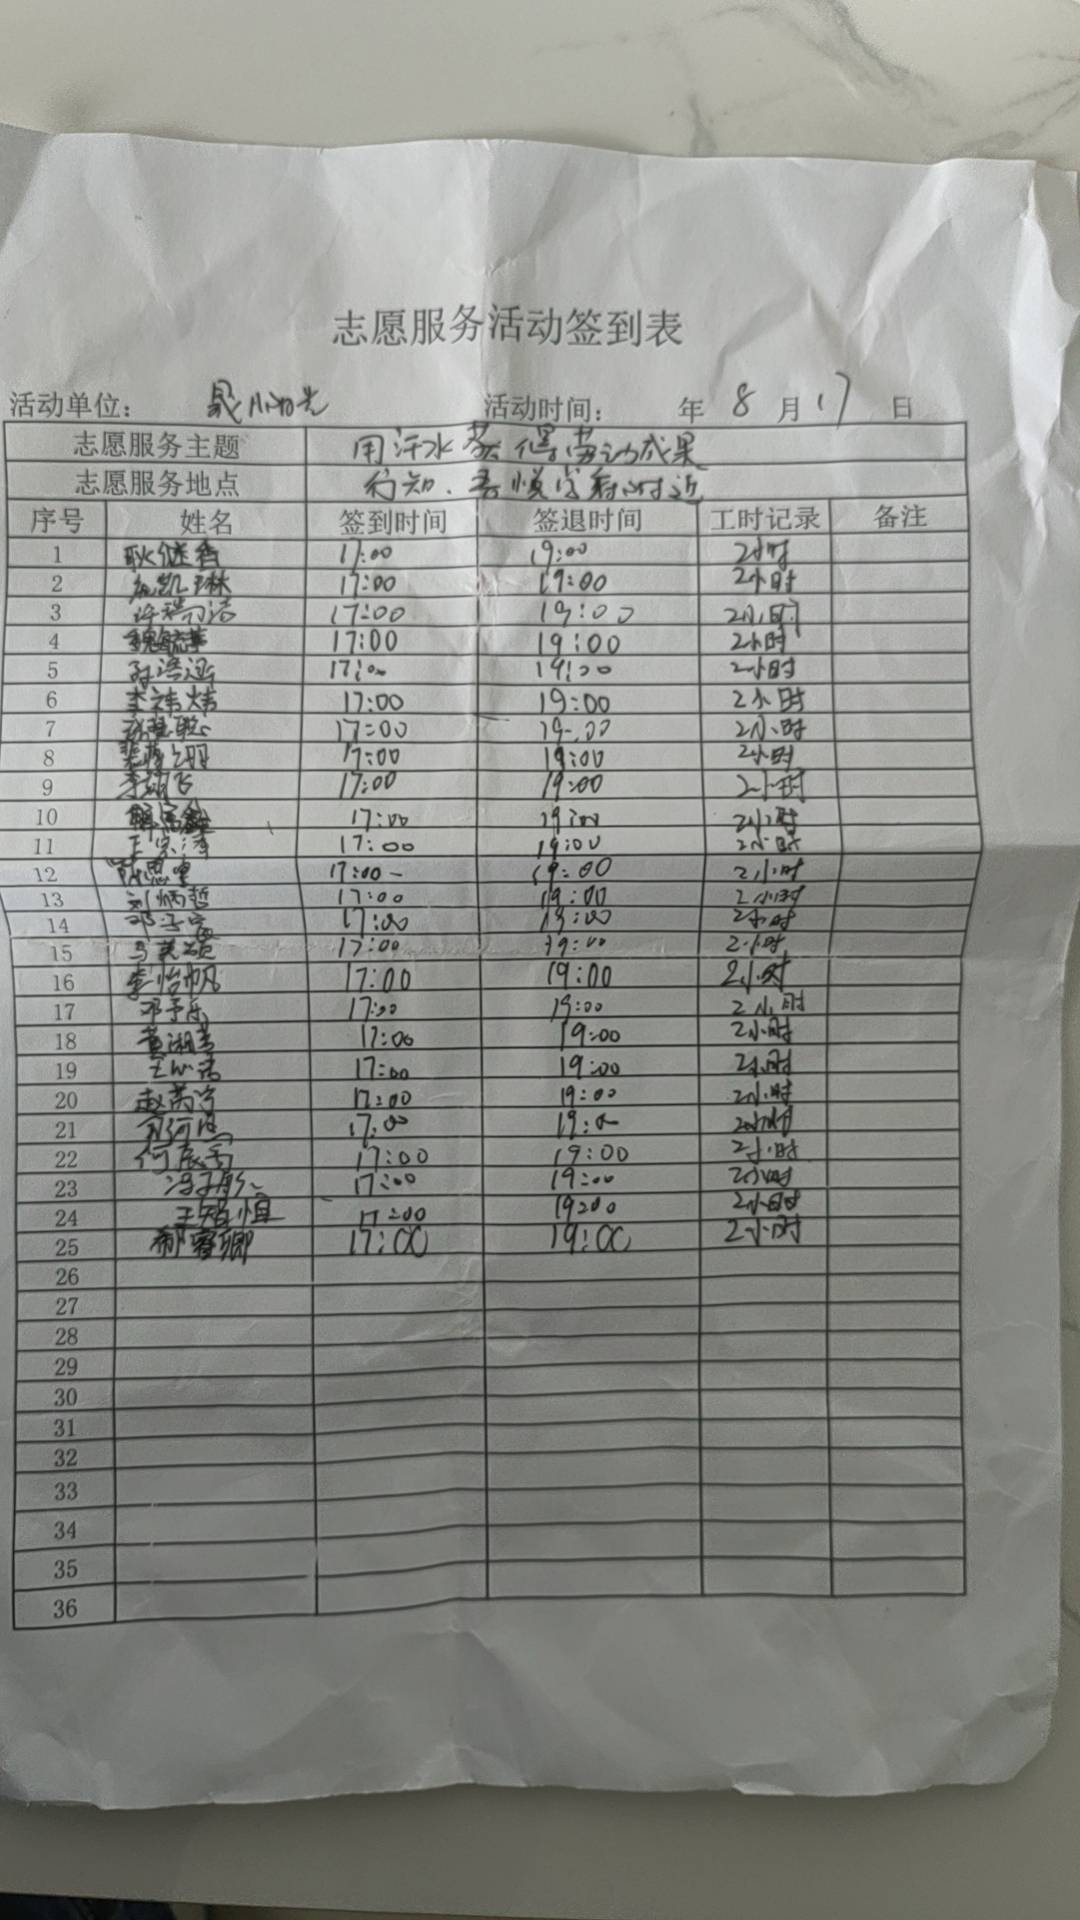 志愿服务活动签到表
活动单位： 活动时间： 年 8 月 17 日
志愿服务主题 用汗水 劳动成果
志愿服务地点 行知、吾悦 附近
序号 姓名 签到时间 签退时间 工时记录 备注
1 耿继香 17:00 19:00 2小时
2 凯琳 17:00 19:00 2小时
3 许瑞洁 17:00 19:00 2小时
4 魏毓 17:00 19:00 2小时
5 孙浩 17:00 19:00 2小时
6 李祎炜 17:00 19:00 2小时
7 17:00 19:00 2小时
8 17:00 19:00 2小时
9 李翊飞 17:00 19:00 2小时
10 17:00 19:00 2小时
11 王 泽 17:00 19:00 2小时
12 陈思 17:00 19:00 2小时
13 刘炳哲 17:00 19:00 2小时
14 邓子 17:00 19:00 2小时
15 马英硕 17:00 19:00 2小时
16 李怡帆 17:00 19:00 2小时
17 邓予乐 17:00 19:00 2小时
18 黄湘 17:00 19:00 2小时
19 王心洁 17:00 19:00 2小时
20 赵 17:00 19:00 2小时
21 17:00 19:00 2小时
22 何辰雨 17:00 19:00 2小时
23 冯子彤 17:00 19:00 2小时
24 王智恒 17:00 19:00 2小时
25 郝睿卿 17:00 19:00 2小时
26
27
28
29
30
31
32
33
34
35
36